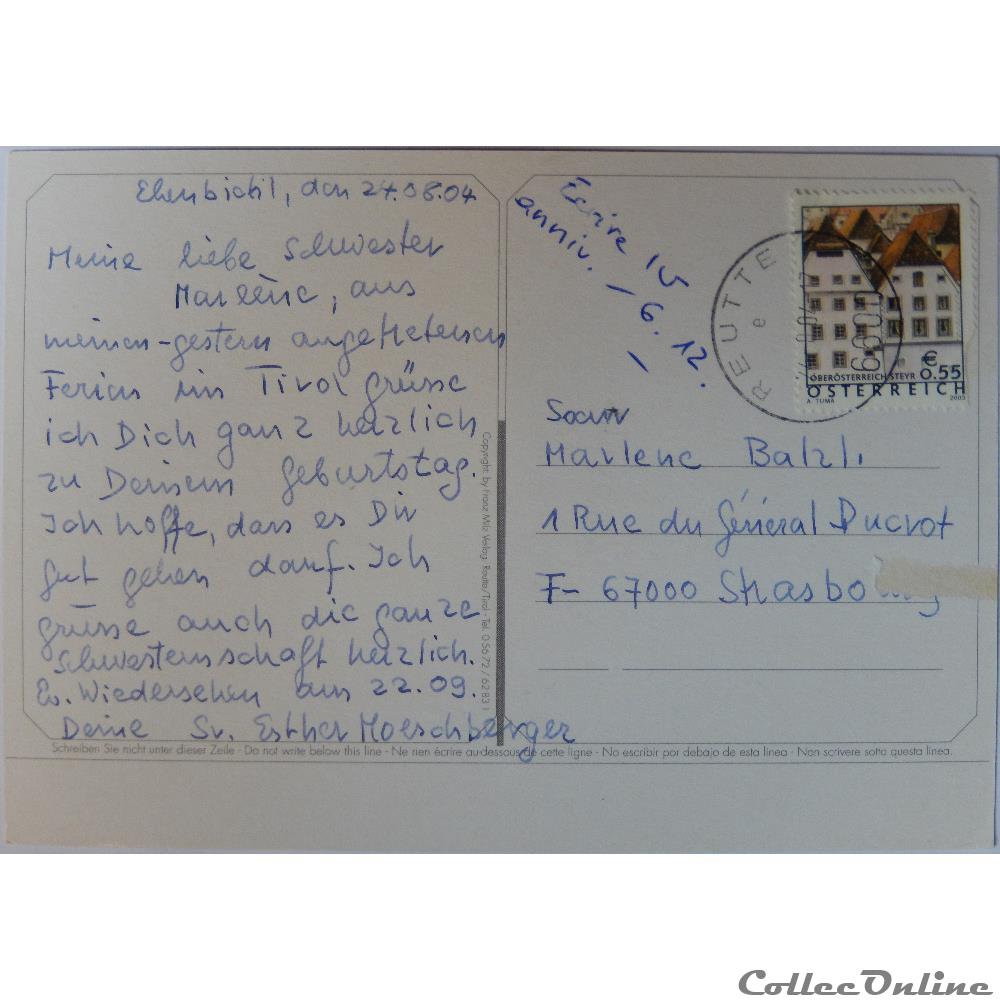 Ehenbichl, den 27.08.04
Meine liebe Schwester
Marlène, aus
meinen - gestern angetretenen
Ferien im Tirol grüsse
ich Dich ganz herzlich
zu Deinem Geburtstag.
Ich hoffe, dass es Dir
gut gehen darf. Ich
grüsse auch die ganze
Schwesternschaft herzlich.
Ev. Wiedersehen am 22.09.
Deine Sr. Esther Moeschberger
Copyright by Franz Milz Verlag Reutte/Tirol - Tel. 0 56 72 / 62 83 1
Ecrire 15
anniv. - 6.12.
REUTTE
e
6600
€ 0.55
OBERÖSTERREICH STEYR
ÖSTERREICH
A. TUMA 2003
Soeur
Marlene Balzli
1 Rue du Général Ducrot
F- 67000 Strasbo
Schreiben Sie nicht unter dieser Zeile - Do not write below this line - Ne rien écrire au-dessous de cette ligne - No escribir por debajo de esta linea - Non scrivere sotto questa linea.
CollecOnline